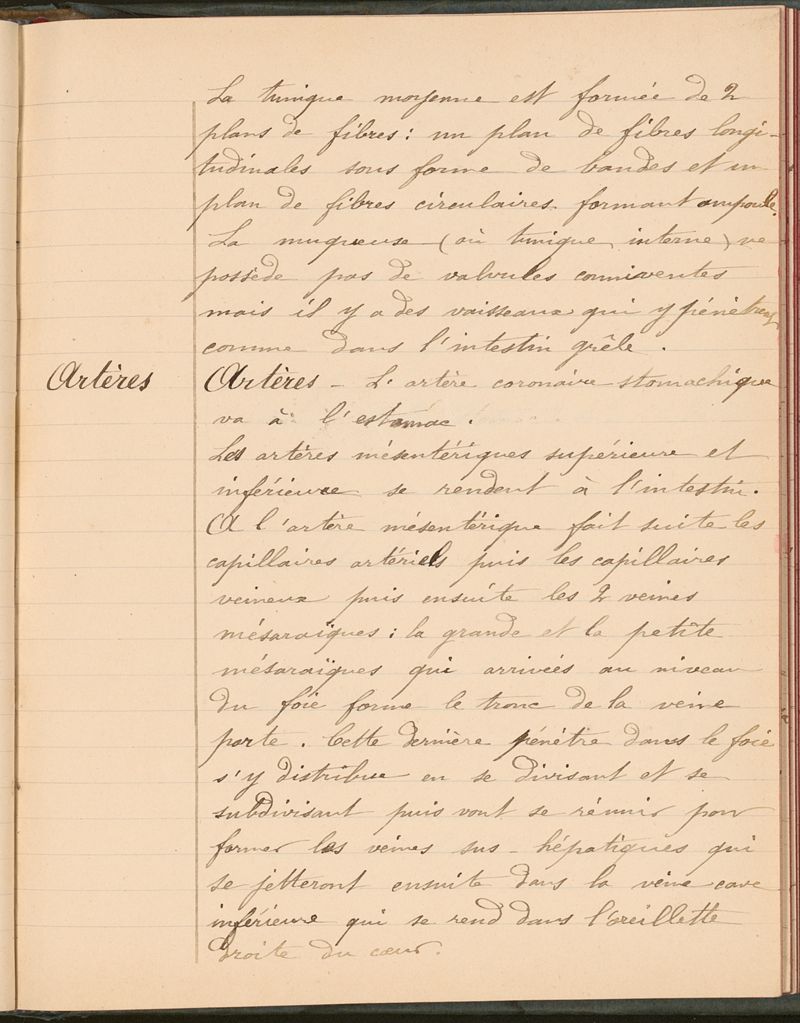 La tunique moyenne est formée de 2
plans de fibres : un plan de fibres longi-
tudinales sous forme de bandes et un
plan de fibres circulaires formant ampoule.
La muqueuse (où tunique interne) ne
possède pas de valvules conniventes
mais il y a des vaisseaux qui y pénètrent
comme dans l'intestin grêle.
Artères
Artères - L'artère coronaire stomachique
va à l'estomac.
Les artères mésentériques supérieure et
inférieure se rendent à l'intestin.
A l'artère mésentérique fait suite les
capillaires artériels puis les capillaires
veineux puis ensuite les 2 veines
mésaraïques : la grande et la petite
mésaraïques qui arrivées au niveau
du foie forme le tronc de la veine
porte. Cette dernière pénètre dans le foie
s'y distribue en se divisant et se
subdivisant puis vont se réunir pour
former les veines sus-hépatiques qui
se jetteront ensuite dans la veine cave
inférieure qui se rend dans l'oreillette
droite du cœur.